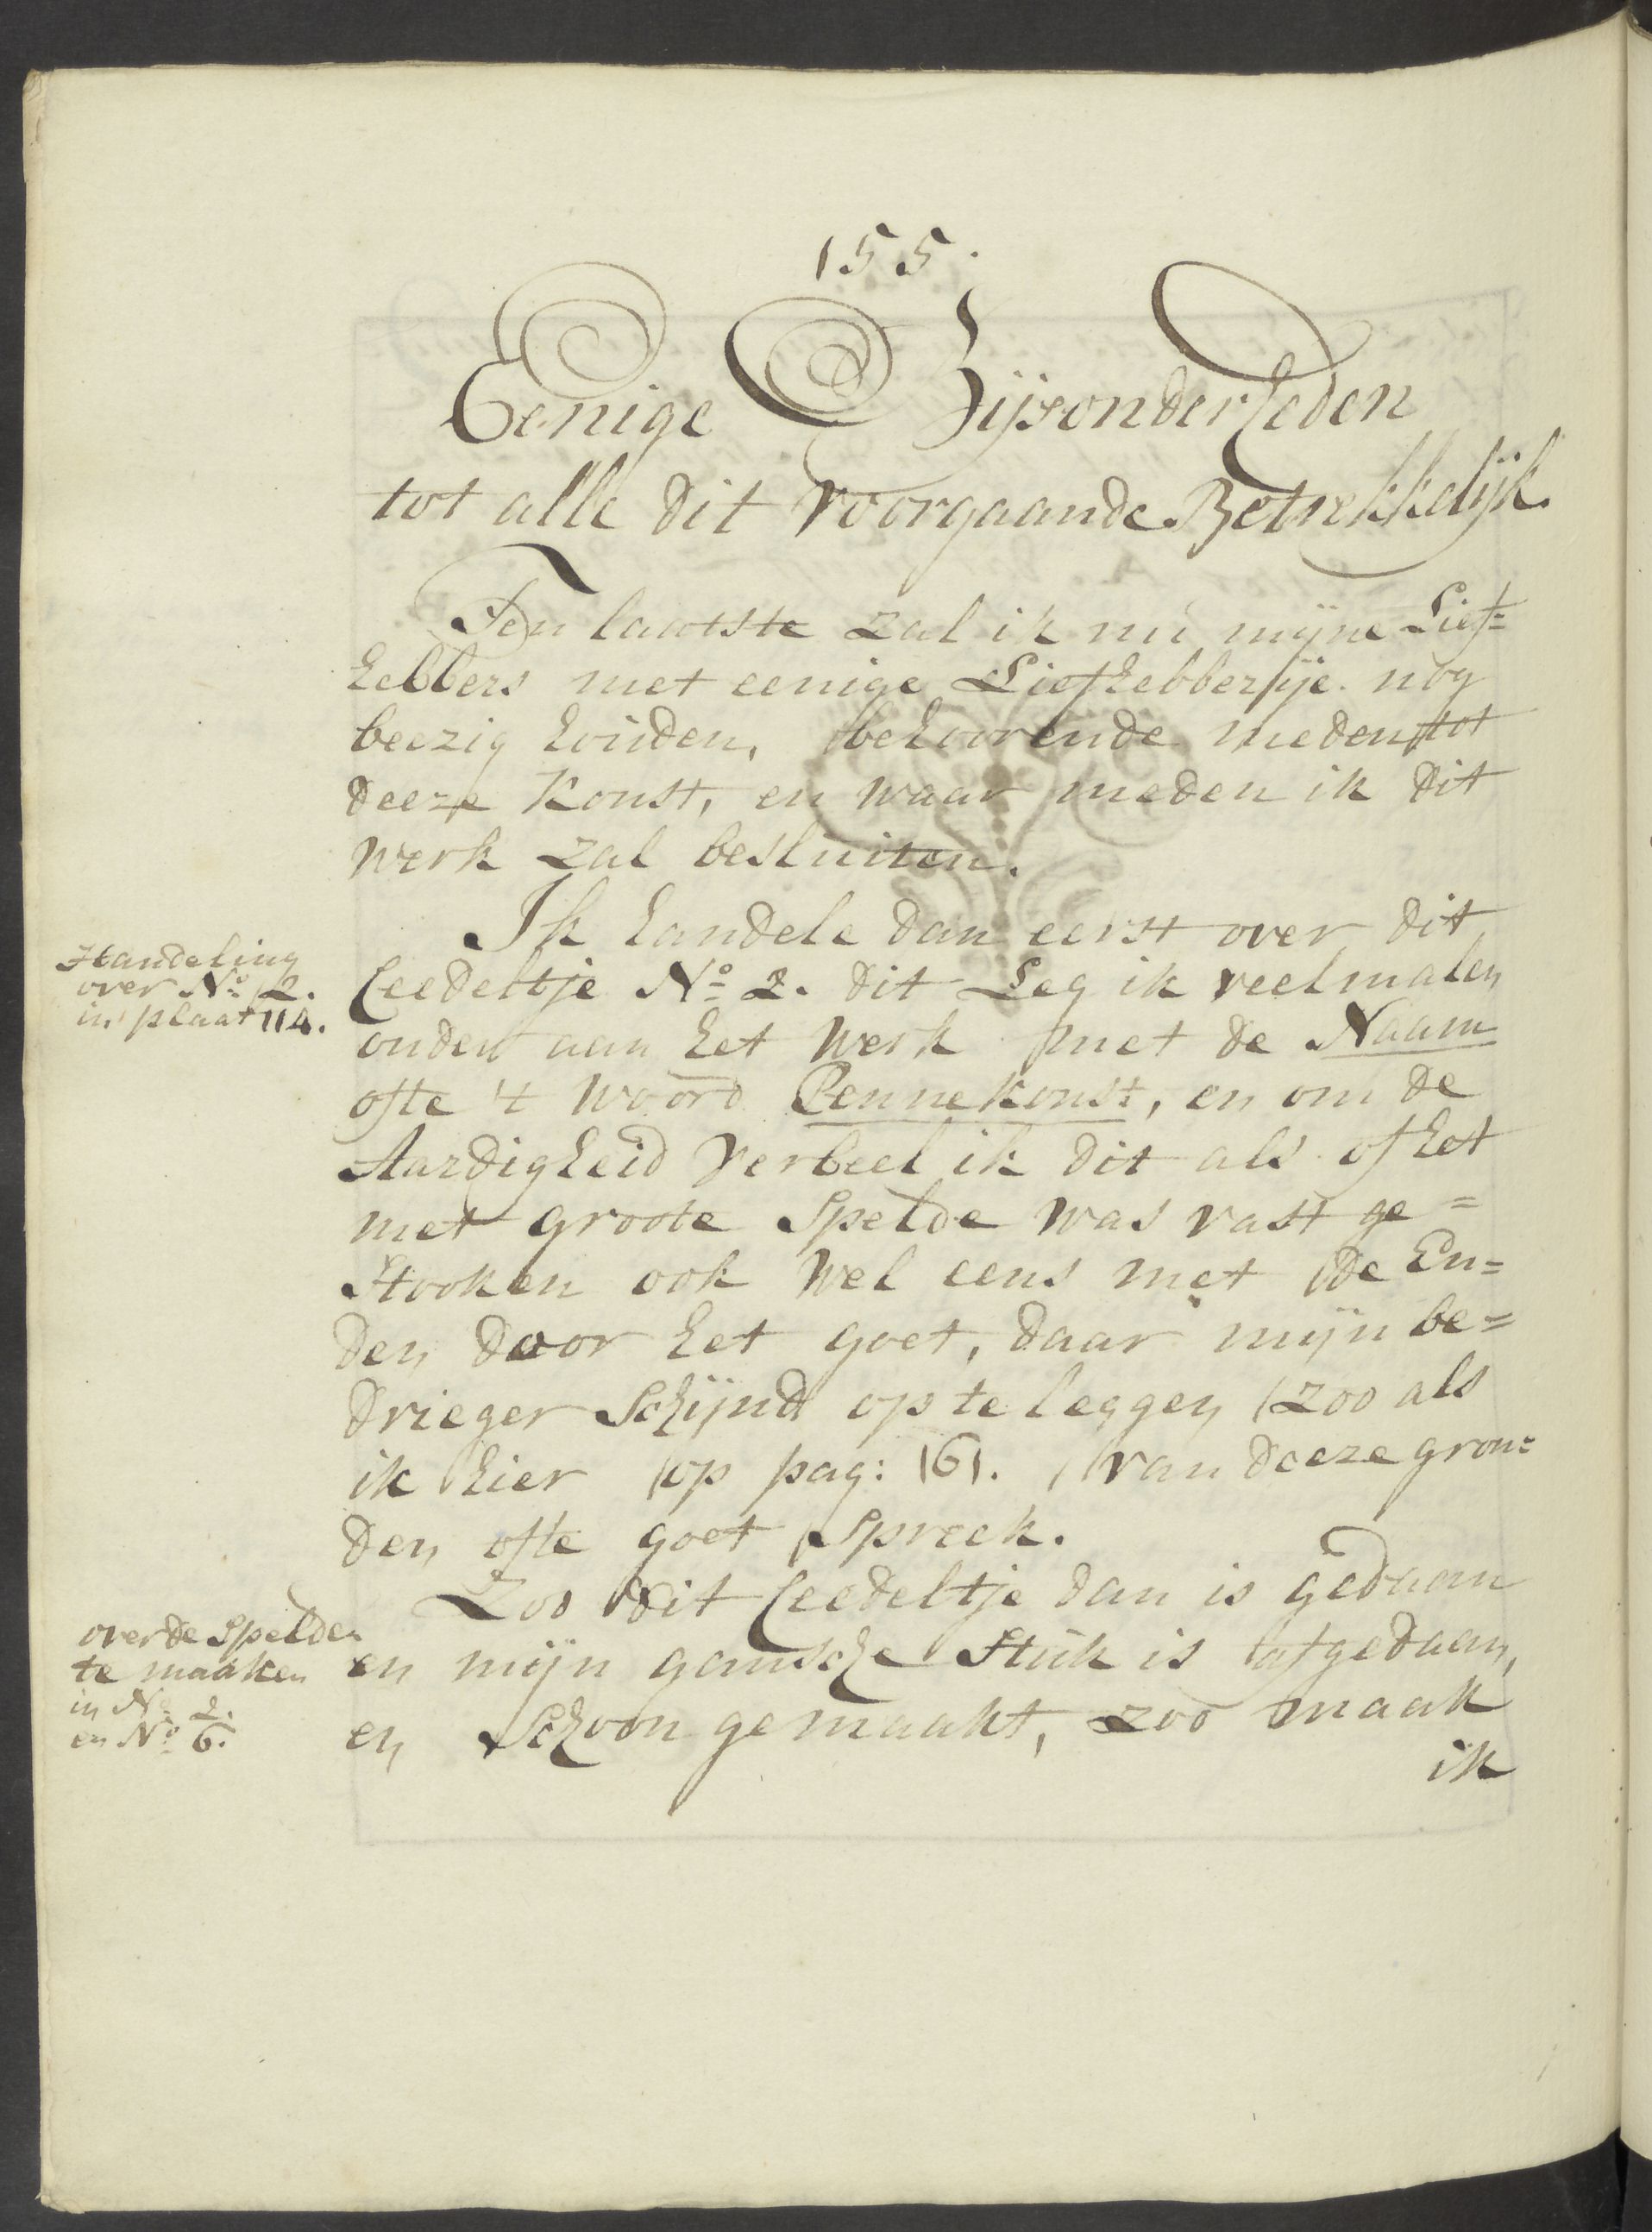 155.
Eenige Bijsonderheden
tot alle dit voorgaande Betrekkelijk.
Ten laatste zal ik nú mijne Lief=
hebbers met eenige Liefhebberije nog
beezig houden, behoorende meden tot
deeze Konst, en waar meden ik dit
werk zal besluiten.
Ik handele dan eerst over dit
Handeling
over No. 2.
in plaat 114.
Ceedeltje No. 2. dit Leg ik veelmalen
onder aan het werk met de Naam
ofte 't woord Pennekonst, en om de
Aardigheid Verbeel ik dit als of het
met groote Spelde was vast ge=
stooken ook wel eens met de En=
den door het goet, daar mijn be=
drieger Schijnd op te leggen (zoo als
ik hier op pag: 161. van deeze gron=
den ofte goet spreek.
Zoo dit Ceedeltje dan is gedaan
over de Spelden
te maaken
in No. 2.
en No. 6.
en mijn gansche Stuk is afgedaan,
en Schoon gemaakt, zoo maak
ik